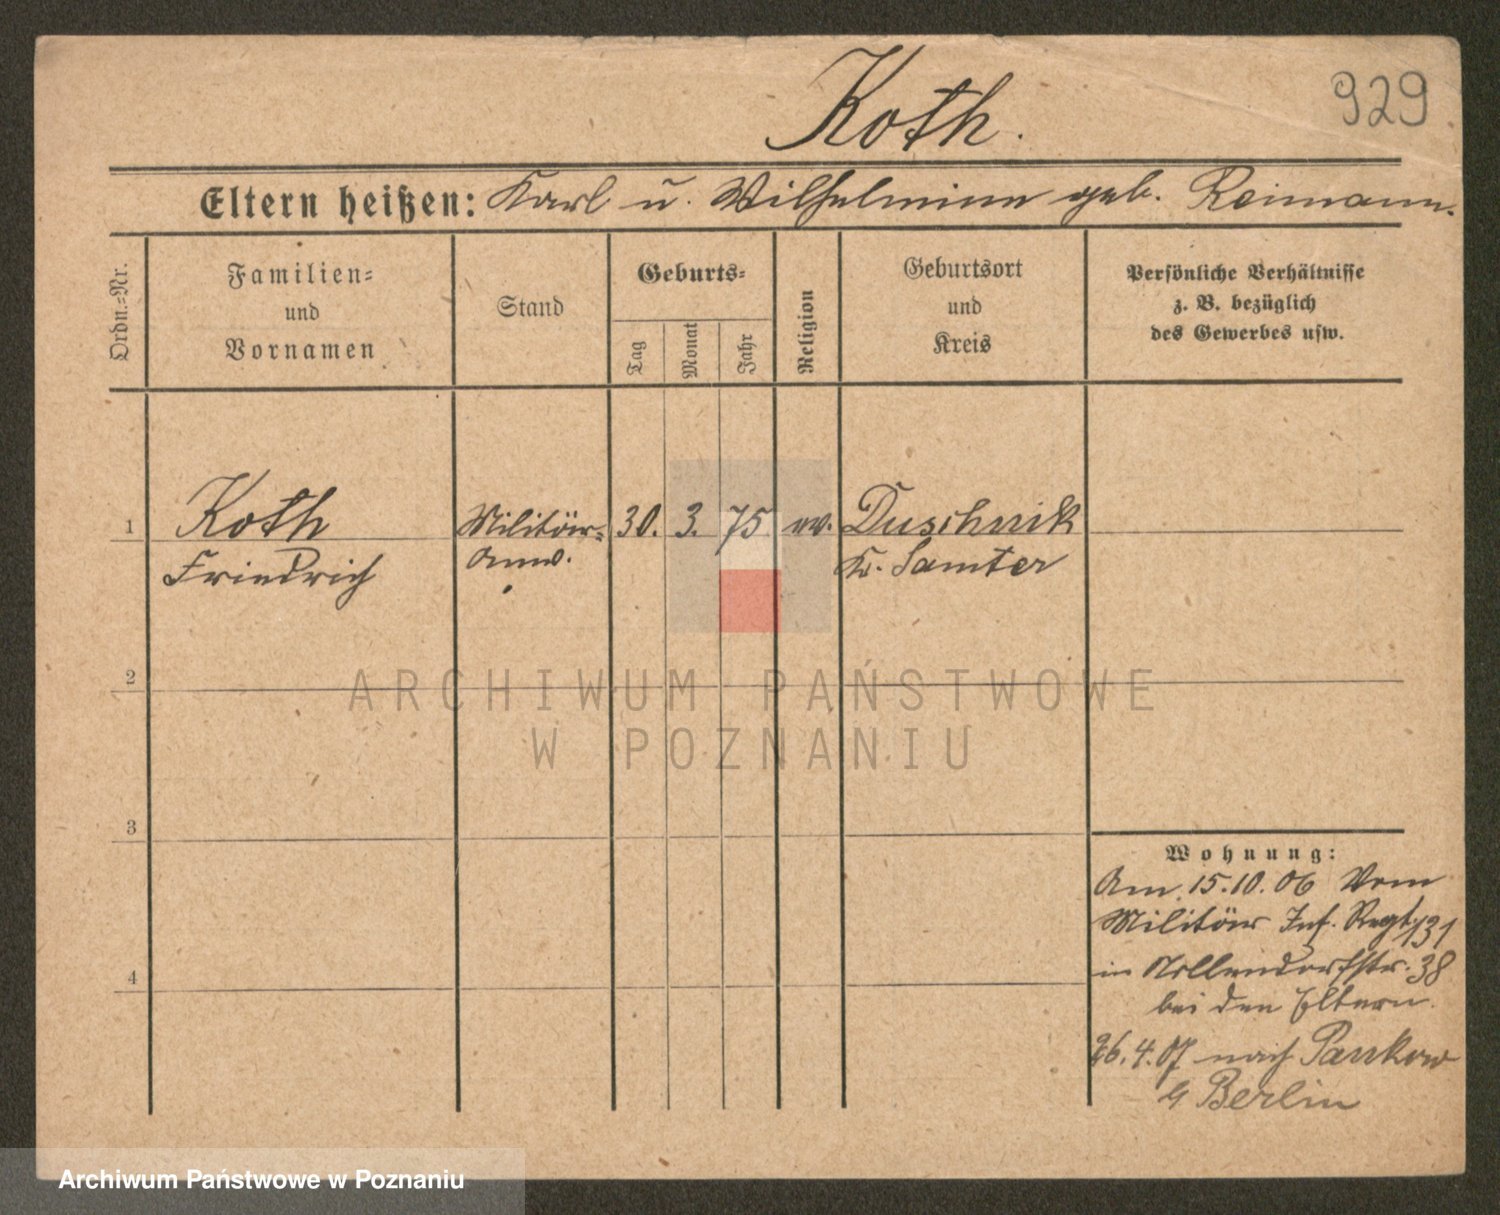 929
Koth.
Eltern heißen: Karl u. Wilhelmine geb. Reimann.
Ordn.=Nr.
Familien=
und
Vornamen
Stand
Geburts=
Tag
Monat
Jahr
Religion
Geburtsort
und
Kreis
Persönliche Verhältnisse
z. B. bezüglich
des Gewerbes usw.
1
Koth
Friedrich
Militär=
Anw.
30. 3. 75
ev.
Duschnik
Kr. Samter
2
ARCHIWUM PAŃSTWOWE
W POZNANIU
3
Wohnung:
Am 15.10.06 Vom
Militär Inf. Regt. 131
in Nollendorfstr. 38
bei den Eltern.
4
26.4.07 nach Pankow
b Berlin
Archiwum Państwowe w Poznaniu